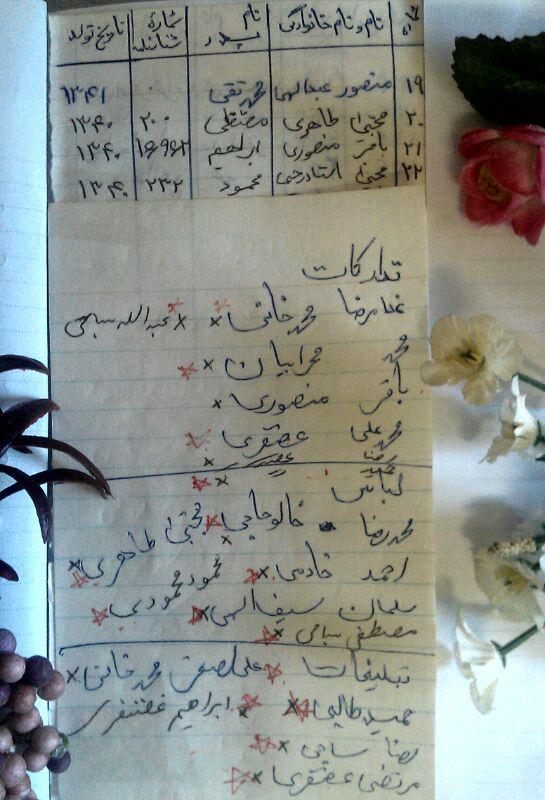 نام و نام خانوادگی نام پدر شماره شناسنامه تاریخ تولد
۱۹ منصور عبدالهی محمدتقی ۱۳۴۱
۲۰ مجتبی طاهری مصطفی ۲۰۰ ۱۳۴۰
۲۱ باقر منصوری ابراهیم ۱۶۹۶۲ ۱۳۴۰
۲۲ مجتبی استادرحیمی محمود ۲۳۲ ۱۳۴۰
تدارکات
غلامرضا محمدخانی × × عبدالله سیامی
محمد محرابیان ×
باقر منصوری ×
محمد علی غضنفری
لباس ×
محمدرضا خالوحاجی × مجتبی طاهری ×
احمد خادمی × محمود محمودی
سلمان سیف الهی ×
مصطفی سیامی ×
تبلیغات علی اصغر محمدخانی ×
حمید طالبی × ابراهیم غضنفری ×
رضا سیامی ×
مرتضی غضنفری ×